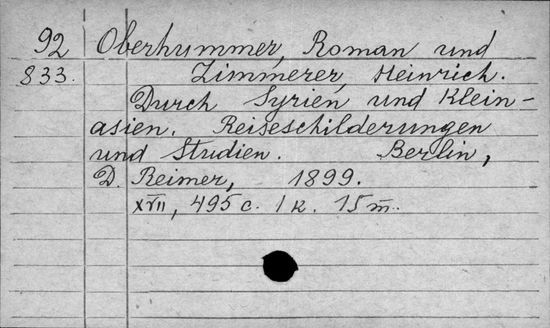 92 Oberhummer, Roman und
833. Zimmerer, Heinrich.
Durch Syrien und Klein-
asien. Reiseschilderungen
und Studien. Berlin,
D. Reimer, 1899.
XVII, 495 c. 1 к. 15 т.